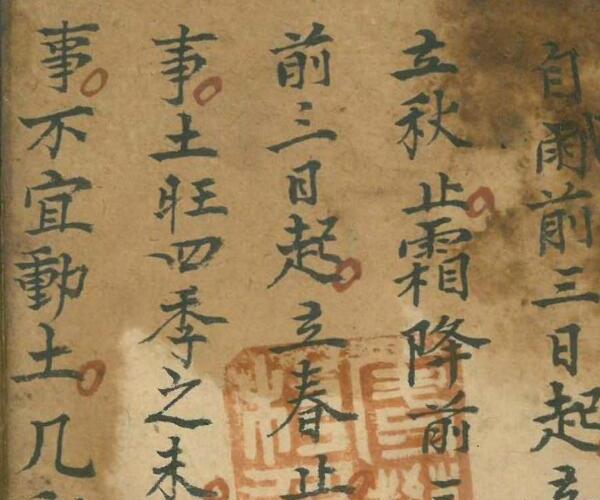 自雨前三日起
立秋止霜降前
前三日起立春止
事土旺四季之末
事不宜動土几